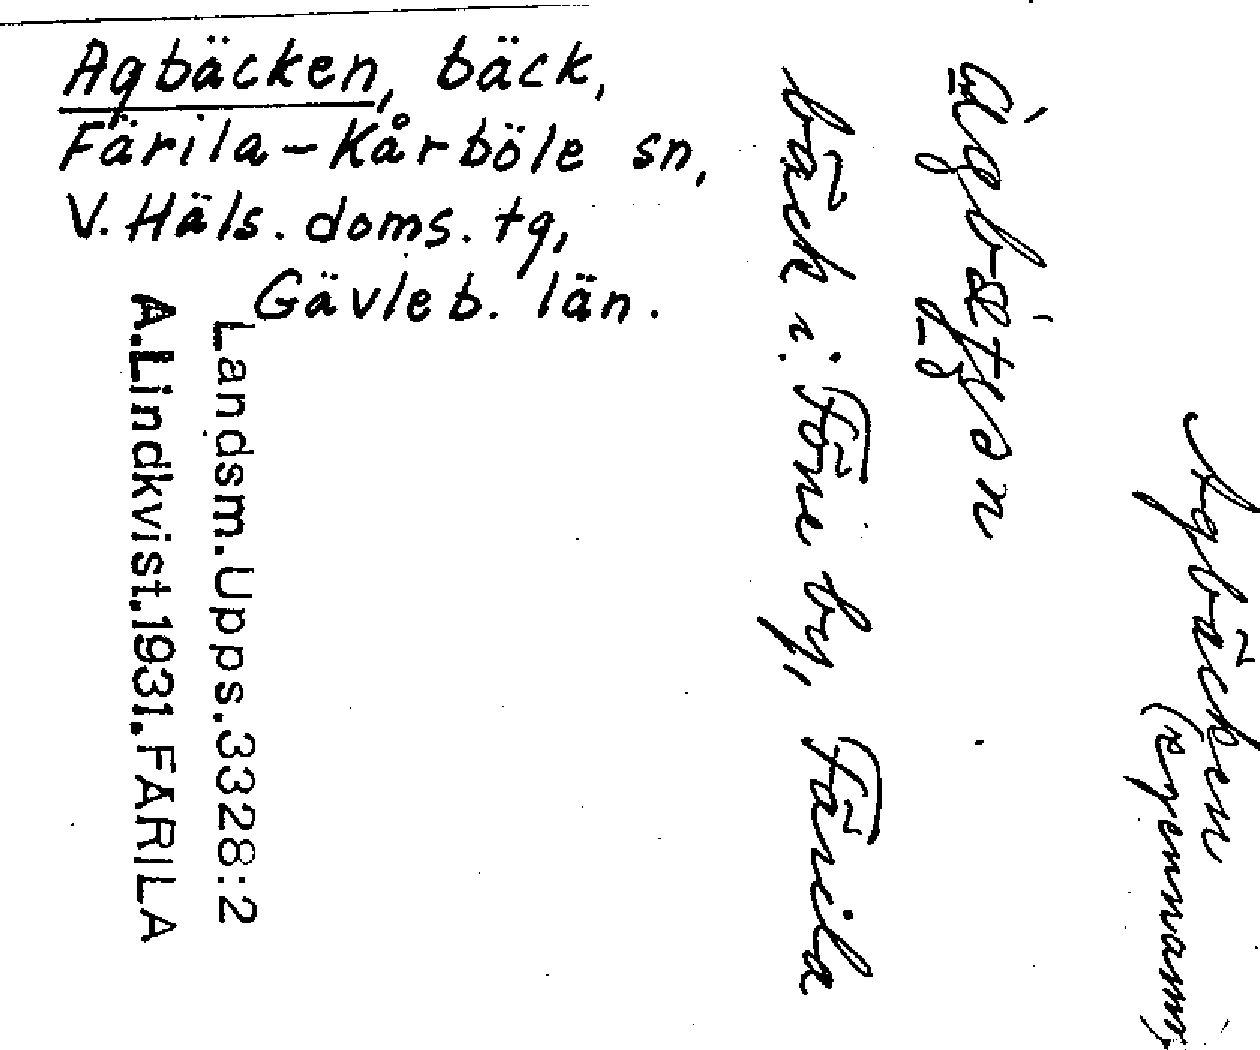 Agbäcken, bäck,
Färila-Kårböle sn,
V. Häls. doms. tg,
Gävleb. län.
Agbäcken
(egennamn)
bäck i Föne by, Färila
Landsm. Upps. 3328:2
A. Lindkvist. 1931. FÄRILA